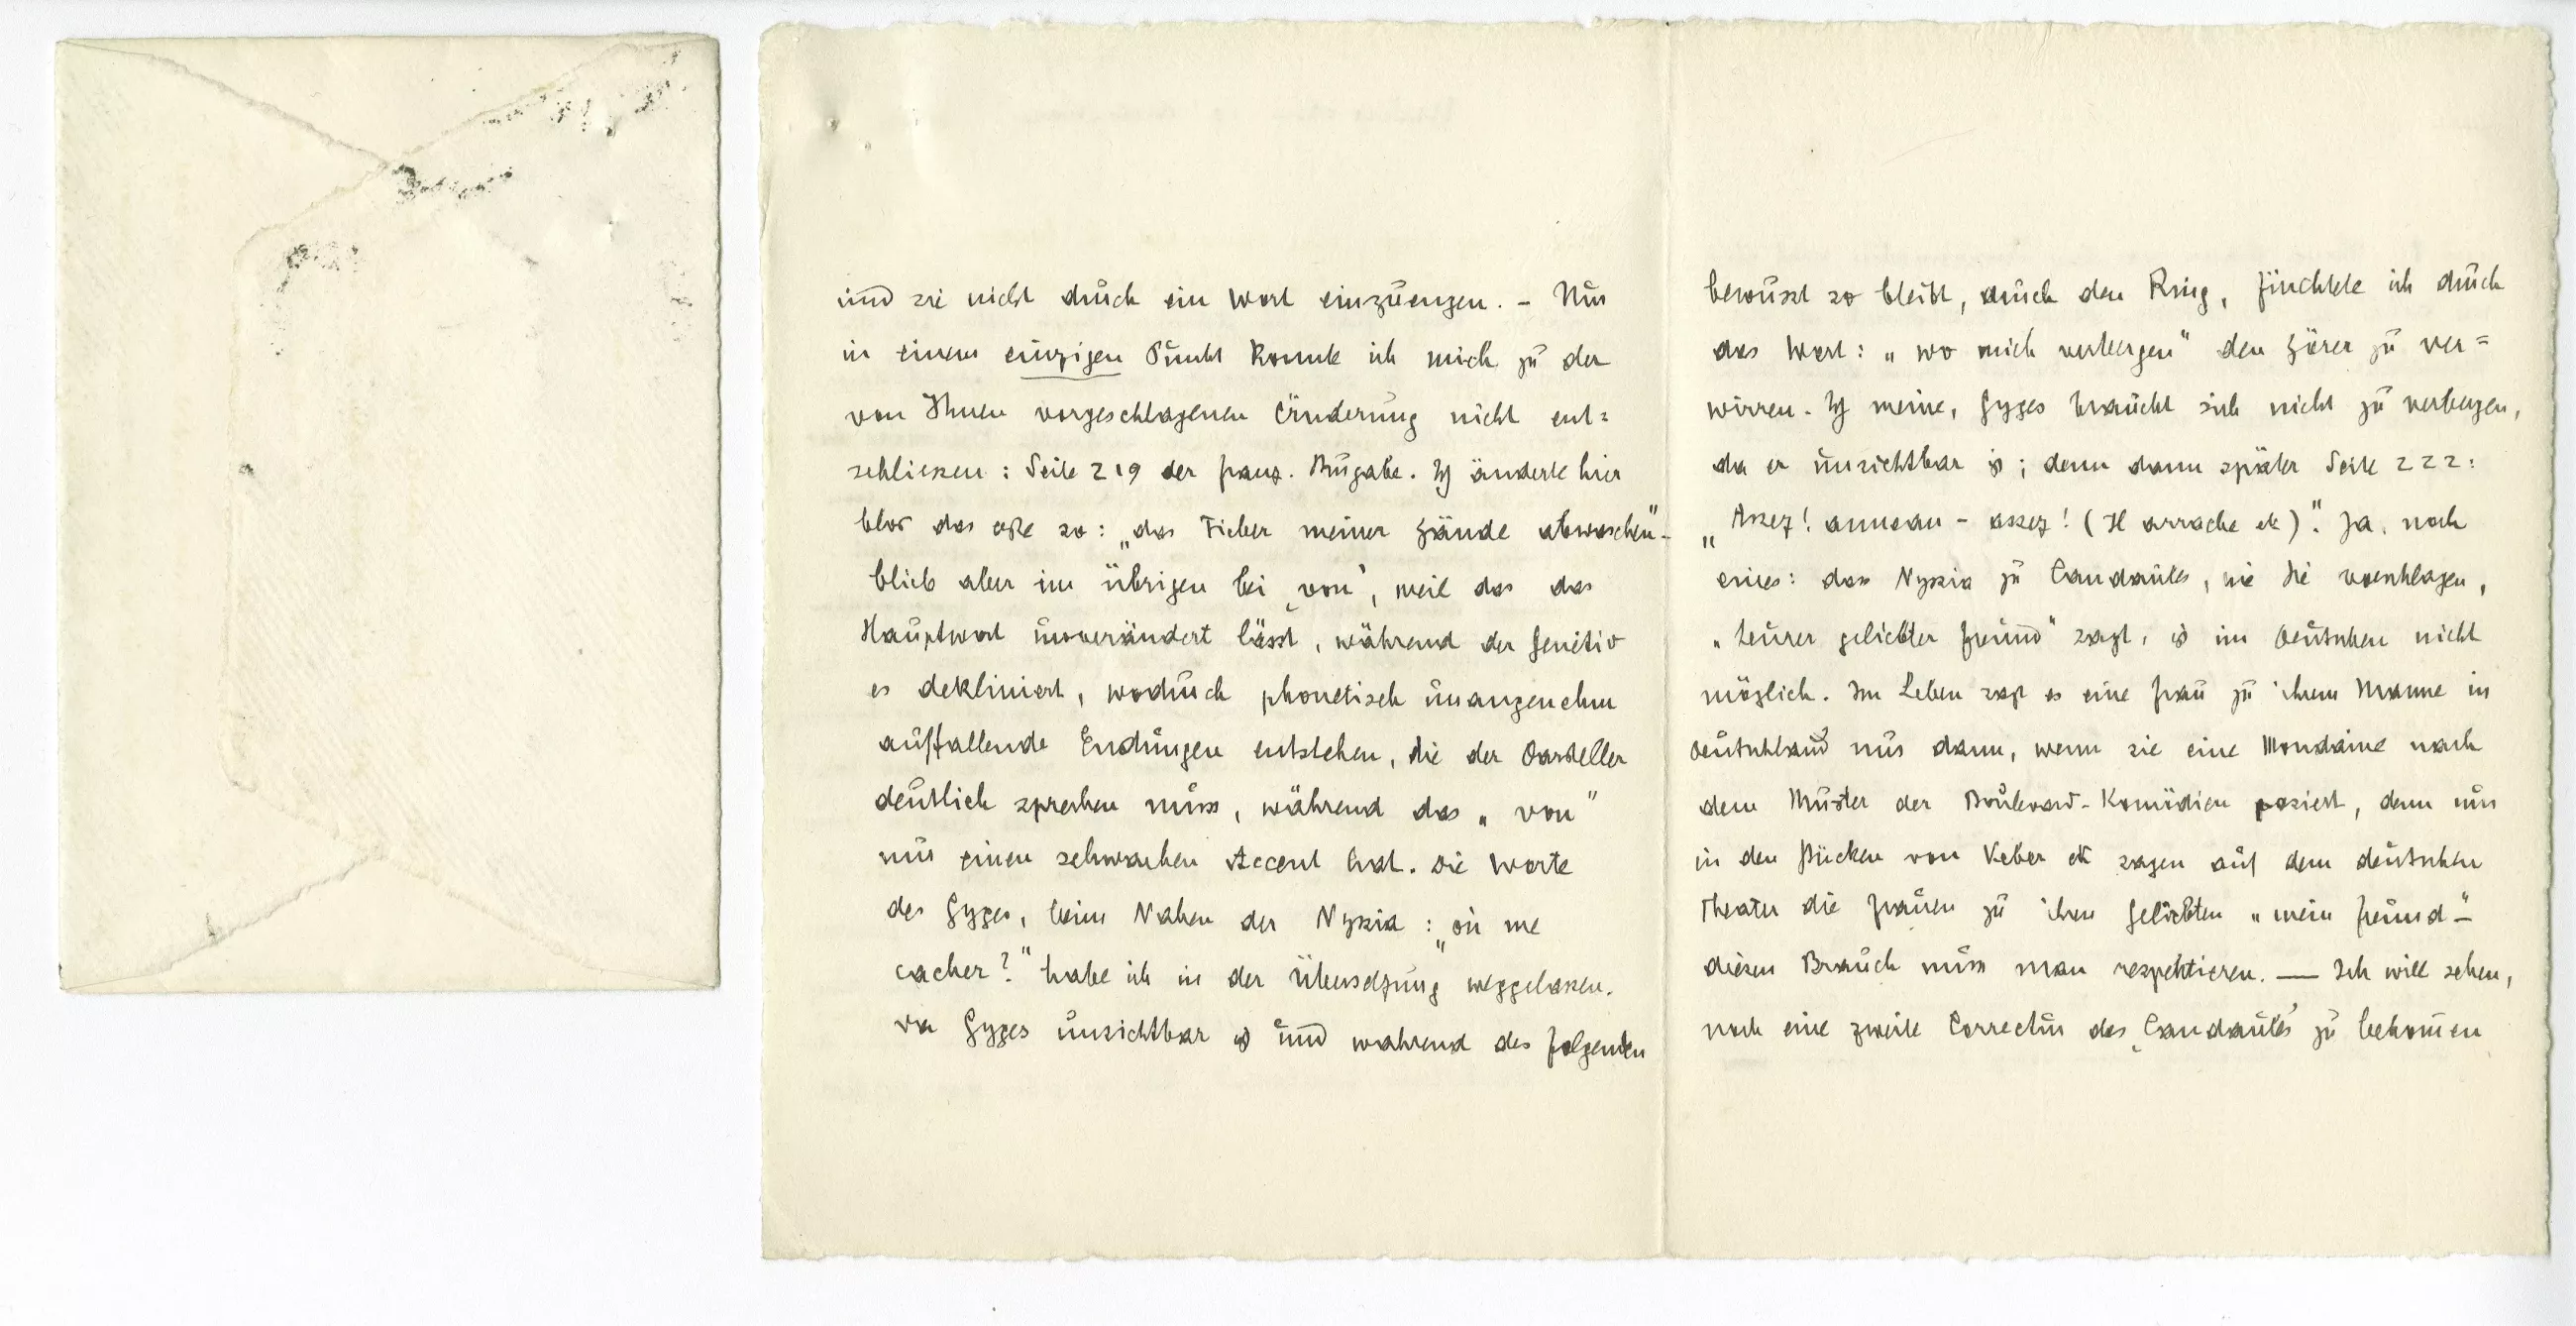 und sie nicht durch ein Wort einzuengen. – Nur
in einem einzigen Punkt konnte ich mich zu der
von Ihnen vorgeschlagenen Änderung nicht ent=
schliessen: Seite 219 der franz. Ausgabe. Ich änderte hier
blos das erste so: „das Fieber meiner Hände abwaschen“ –
blieb aber im übrigen bei ‚von‘, weil das das
Hauptwort unverändert lässt, während der Genitiv
es dekliniert, wodurch phonetisch unangenehm
auffallende Endungen entstehen, die der Darsteller
deutlich sprechen muss, während das „von“
nur einen schwachen Accent hat. Die Worte
des Gyges, beim Nahen der Nyssia: „où me
cacher?“ habe ich in der Übersetzung weggelassen.
Da Gyges unsichtbar ist und wahrend des folgenden
bewusst so bleibt, durch den Ring, fürchtete ich durch
das Wort: „wo mich verbergen“ den Hörer zu ver=
wirren. Ich meine, Gyges braucht sich nicht zu verbergen,
da er unsichtbar ist; denn dann später Seite 222:
„Assez! anneau – assez! (Il arrache etc)“. Ja, noch
eines: dass Nyssia zu Candaules, wie Sie vorschlagen,
„teurer geliebter Freund“ sagt, ist im Deutschen nicht
möglich. Im Leben sagt es eine Frau zu ihrem Manne in
Deutschland nur dann, wenn sie eine Mondaine nach
dem Muster der Boulevard-Komödien posiert, denn nur
in den Stücken von Veber etc sagen auf dem deutschen
Theater die Frauen zu ihren Geliebten „mein Freund“ –
diesen Brauch muss man respektieren. — Ich will sehen,
noch eine zweite Correctur des ‚Candaules‘ zu bekommen